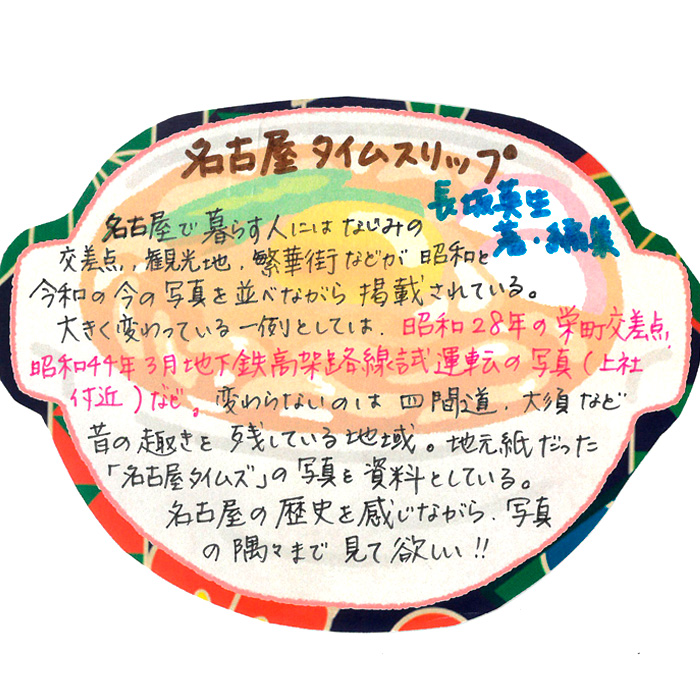 名古屋タイムスリップ
長坂英生
著・編集
名古屋で暮らす人にはなじみの
交差点，観光地，繁華街などが昭和と
令和の今の写真を並べながら掲載されている。
大きく変わっている一例としては，昭和28年の栄町交差点，
昭和44年3月地下鉄高架路線試運転の写真（上社
付近）など。変わらないのは四間道，大須など
昔の趣きを残している地域。地元紙だった
「名古屋タイムズ」の写真を資料としている。
名古屋の歴史を感じながら，写真
の隅々まで見て欲しい!!